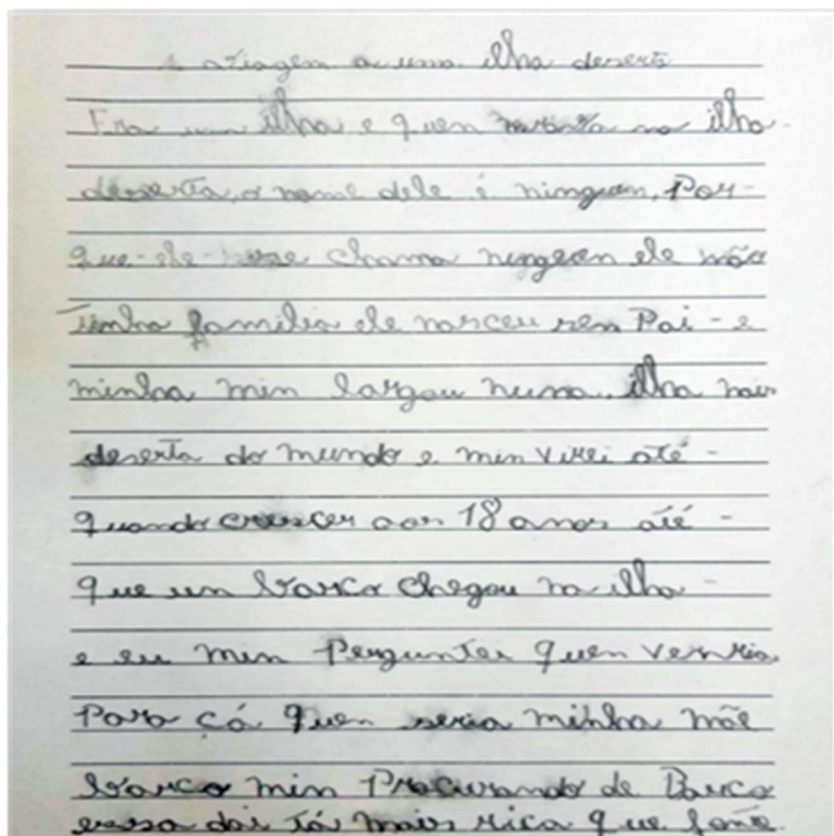 a viagem a uma ilha deserta
Era um ilha e quen na ilha
deserta, o nome dele é ninguen, Por-
que-ele chama ningeen ele não
Tinha familia ele nasceu sem Pai - e
minha min largou numa ilha mais
deserta do mundo e min virei até -
quando crescer aos 18 anos até -
que um barco chegou na ilha -
e eu min Perguntei quen
Para cá quen seria minha mãe
barco min Procurando de Barco
essa dai tá mais rica que